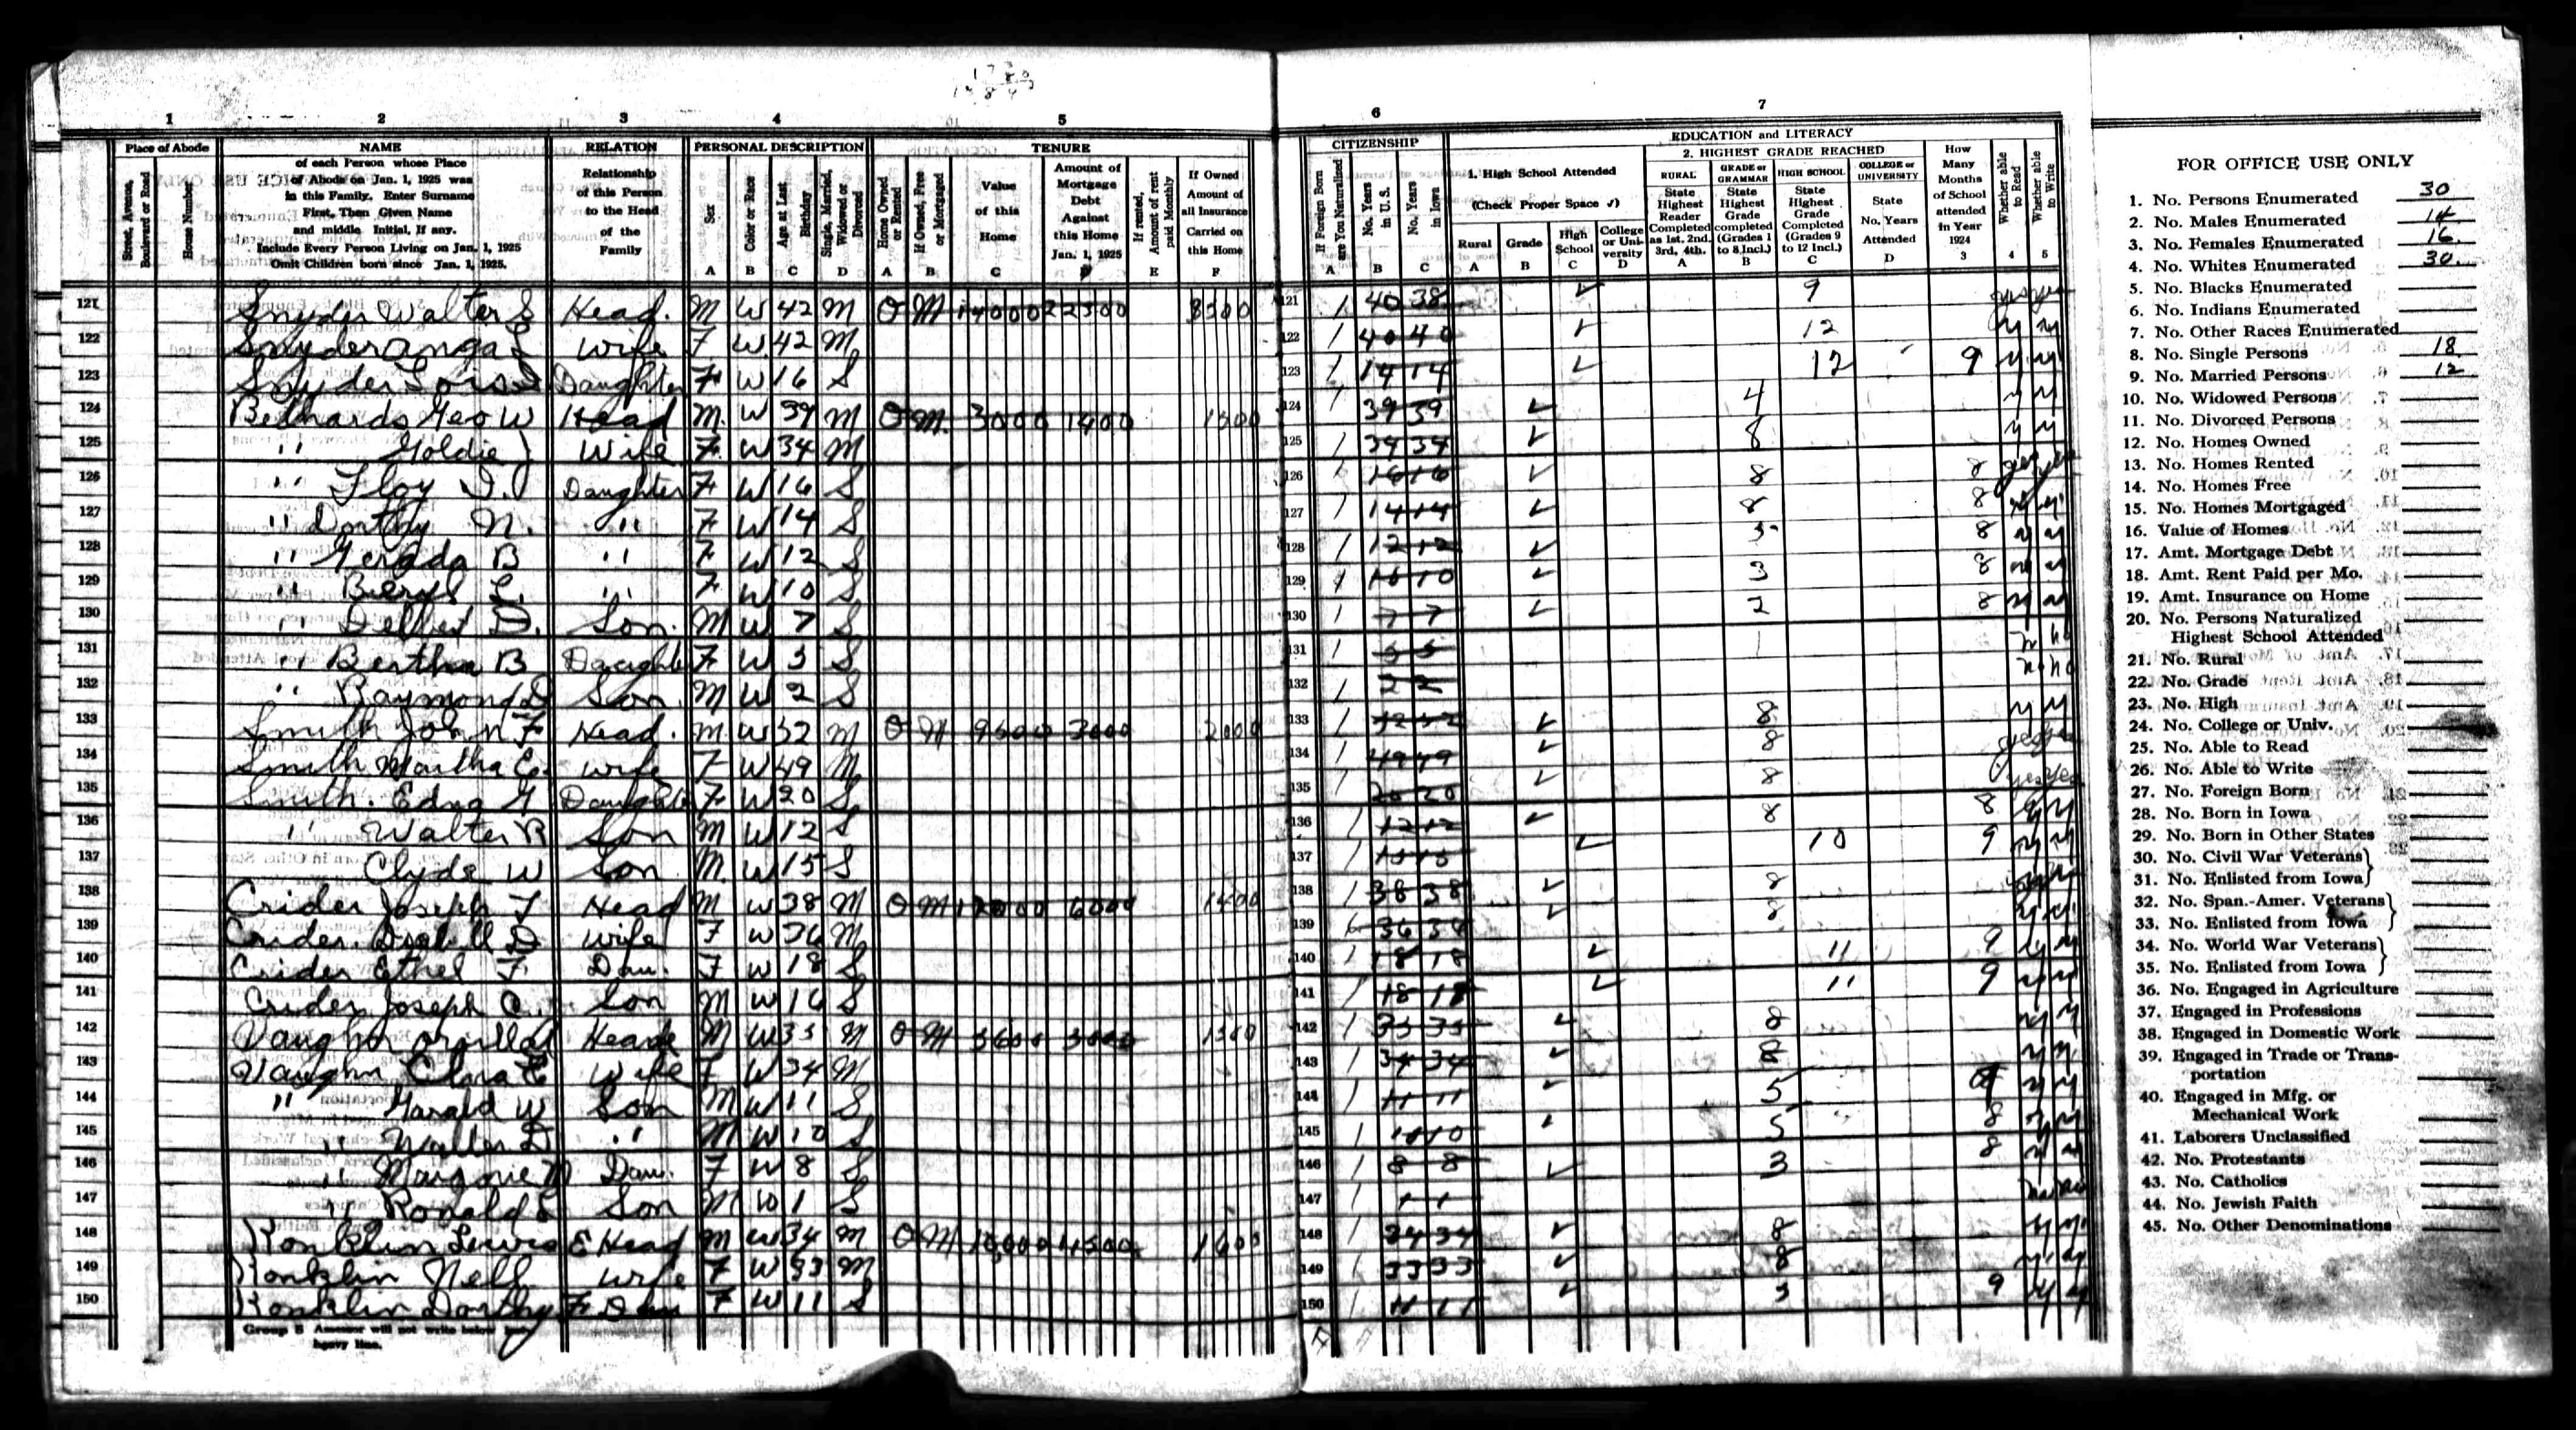 1 2 3 4 5
Place of Abode NAME RELATION PERSONAL DESCRIPTION TENURE
Street, Avenue, Boulevard or Road
House Number
of each Person whose Place
of Abode on Jan. 1, 1925 was
in this Family. Enter Surname
First, Then Given Name
and middle Initial, if any.
Include Every Person Living on Jan. 1, 1925
Omit Children born since Jan. 1, 1925.
Relationship
of this Person
to the Head
of the
Family
Sex
Color or Race
Age at Last Birthday
Single, Married, Widowed or Divorced
Home Owned or Rented
If Owned, Free or Mortgaged
Value of this Home
Amount of Mortgage Debt Against this Home Jan. 1, 1925
If rented, Amount of rent paid Monthly
If Owned Amount of all Insurance Carried on this Home
A B C D A B C D E F
121 Snyder Walter S Head. M W 42 M O M 14000 3500
122 Snyder L Wife F W 42 M
123 Snyder Lois Daughter F W 16 S
124 Geo W Head M. W 39 M O M. 3000 1400
125 " Goldie Wife F W 34 M
126 " Floy D. Daughter F W 16 S
127 " Dorthy N. " F W 14 S
128 " B " F W 12 S
129 " Beryl L. " F W 10 S
130 " Delbert D. Son. M W 7 S
131 " Bertha B F W 5 S
132 " Raymond D Son. M W 2 S
133 Smith John F Head. M W 52 M O M 3000 2000
134 Smith Martha E. Wife F W 49 M
135 Smith. Edna F W 20 S
136 " Walter R Son M W 12 S
137 Clyde W Son M. W 15 S
138 Crider Joseph T Head M W 38 M O M 6000
139 Crider. D Wife F W 36 M
140 Crider Ethel F Dau. F W 18 S
141 Crider Joseph C. Son M W 16 S
142 Vaughn M W 35 M O M
143 Vaughn Clara E Wife F W 34 M
144 " Garald W Son M W 11 S
145 " Walter D " M W 10 S
146 " Marjorie M Dau. F W 8 S
147 " Ronald Son M W 1 S
148 Konklin Lewis E Head M W 34 M O M 10000
149 Konklin Nell Wife F W 33 M
150 Konklin Dorthy F Dau F W 11 S
heavy line.
6 7
CITIZENSHIP EDUCATION and LITERACY
If Foreign Born are You Naturalized
No. Years in U.S.
No. Years in Iowa
1. High School Attended
(Check Proper Space ✓)
Rural Grade High School College or University
2. HIGHEST GRADE REACHED
RURAL State Highest Reader Completed as 1st, 2nd, 3rd, 4th.
GRADE or GRAMMAR State Highest Grade completed (Grades 1 to 8 Incl.)
HIGH SCHOOL State Highest Grade Completed (Grades 9 to 12 Incl.)
COLLEGE or UNIVERSITY State No. Years Attended
How Many Months of School attended in Year 1924
Whether able to Read
Whether able to Write
A B C A B C D A B C D 3 4 5
121 1 40 38 ✓ 9 yes yes
122 1 40 40 ✓ 12 y y
123 1 14 14 ✓ 12 9 y y
124 1 39 39 ✓ 4 y y
125 1 34 34 ✓ 8 y y
126 1 16 16 ✓ 8 8 yes yes
127 1 14 14 ✓ 8 8 y y
128 1 12 12 ✓ 5 8 y y
129 1 10 10 ✓ 3 8 y y
130 1 7 7 ✓ 2 8 y y
131 1 5 5 no
132 1 2 2 no no
133 1 52 52 ✓ 8 y y
134 1 49 49 ✓ 8 yes yes
135 1 20 20 ✓ 8 yes yes
136 1 12 12 ✓ 8 8 y y
137 1 15 15 ✓ 10 9 y y
138 1 38 38 ✓ 8 y y
139 36 34 ✓ 8 y y
140 1 18 18 ✓ 11 9 y y
141 1 ✓ 11 9 y y
142 1 35 35 ✓ 8 y y
143 1 34 34 ✓ 8 y y
144 1 11 11 ✓ 5 y y
145 1 10 10 ✓ 5 8 y y
146 1 8 8 ✓ 3 8 y y
147 1 1 1
148 1 34 34 ✓ 8 y y
149 1 33 33 ✓ 8 y y
150 1 11 11 ✓ 9 y y
FOR OFFICE USE ONLY
1. No. Persons Enumerated 30
2. No. Males Enumerated 14
3. No. Females Enumerated 16.
4. No. Whites Enumerated 30.
5. No. Blacks Enumerated
6. No. Indians Enumerated
7. No. Other Races Enumerated
8. No. Single Persons 18
9. No. Married Persons 12
10. No. Widowed Persons
11. No. Divorced Persons
12. No. Homes Owned
13. No. Homes Rented
14. No. Homes Free
15. No. Homes Mortgaged
16. Value of Homes
17. Amt. Mortgage Debt
18. Amt. Rent Paid per Mo.
19. Amt. Insurance on Home
20. No. Persons Naturalized
Highest School Attended
21. No. Rural
22. No. Grade
23. No. High
24. No. College or Univ.
25. No. Able to Read
26. No. Able to Write
27. No. Foreign Born
28. No. Born in Iowa
29. No. Born in Other States
30. No. Civil War Veterans
31. No. Enlisted from Iowa
32. No. Span.-Amer. Veterans
33. No. Enlisted from Iowa
34. No. World War Veterans
35. No. Enlisted from Iowa
36. No. Engaged in Agriculture
37. Engaged in Professions
38. Engaged in Domestic Work
39. Engaged in Trade or Trans-
portation
40. Engaged in Mfg. or
Mechanical Work
41. Laborers Unclassified
42. No. Protestants
43. No. Catholics
44. No. Jewish Faith
45. No. Other Denominations